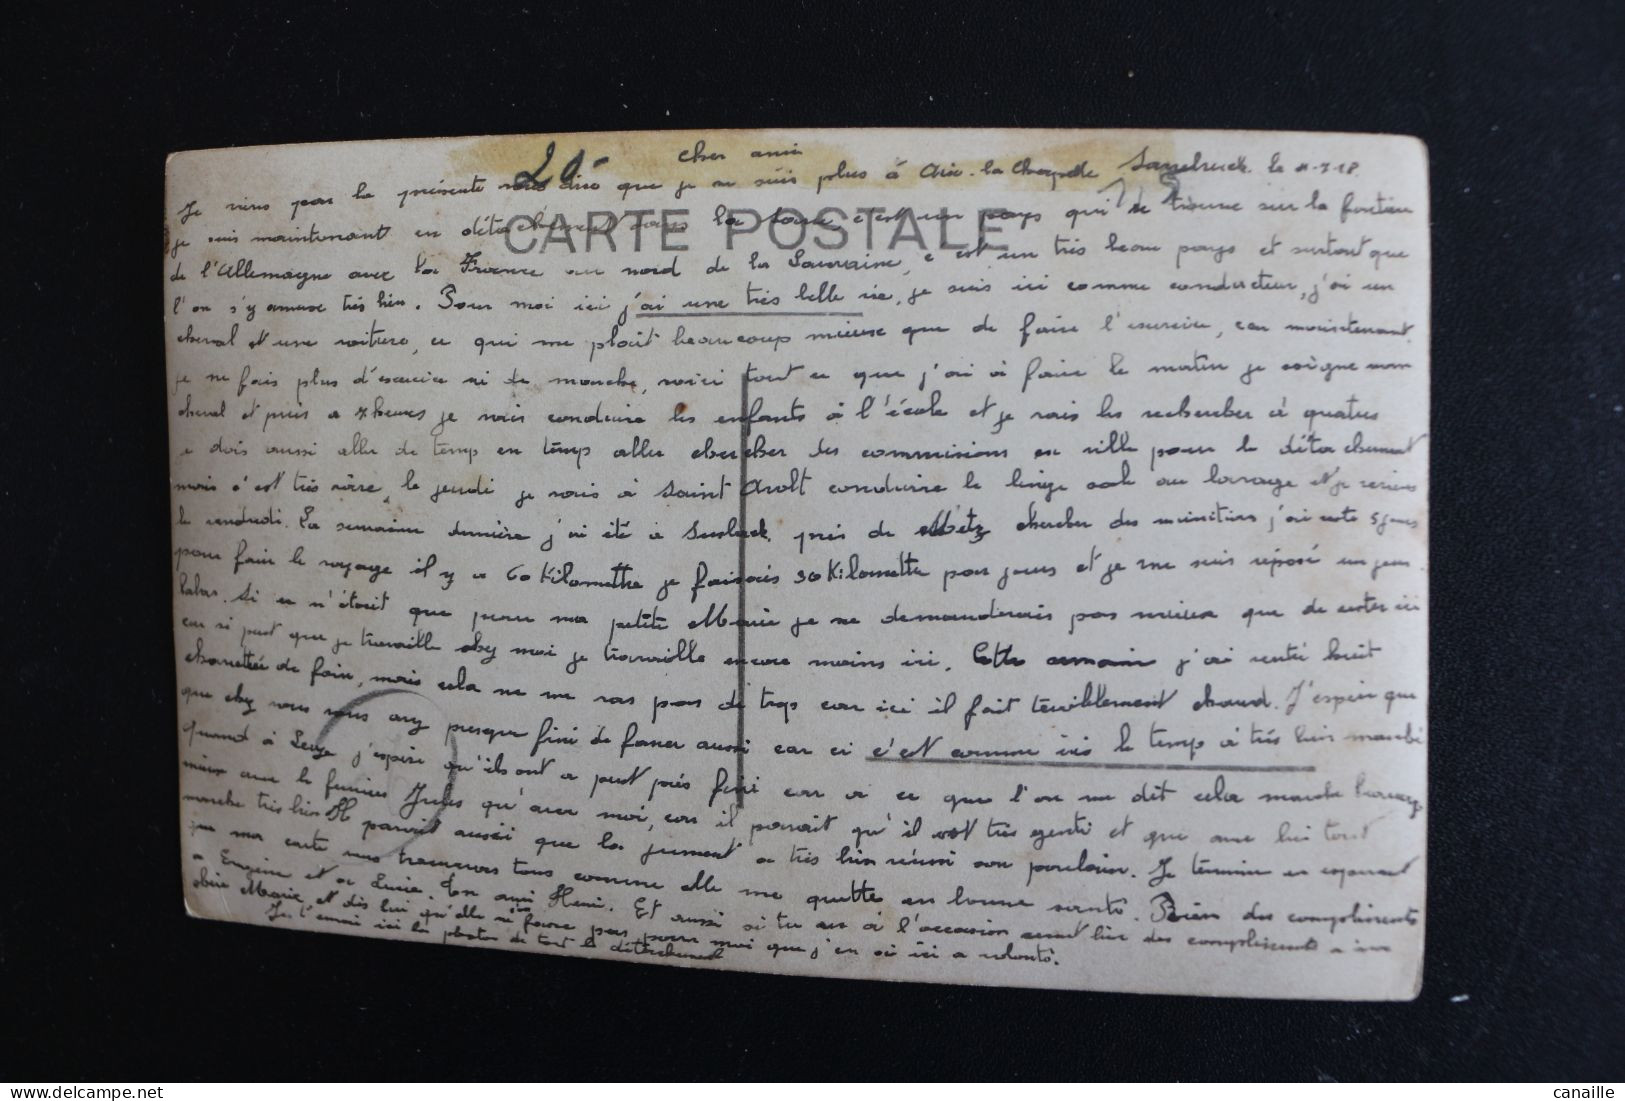 cher ami
20 Sarrebruck. le
CARTE POSTALE
Je viens par la présente vous dire que je ne suis plus à Aix-la Chapelle
je suis maintenant en détachement dans la Sarre c'est un pays qui se trouve sur la
de l'Allemagne avec la France au nord de la Lorraine, c'est un très beau pays et surtout que
l'on s'y amuse très bien. Pour moi ici j'ai une très belle vie, je suis ici comme conducteur, j'ai un
cheval et une voiture, ce qui me plait beaucoup mieux que de faire l'exercice, car maintenant
je ne fais plus d'exercice ni de marche, voici tout ce que j'ai à faire le matin je soigne mon
cheval et puis a 7 heures je vais conduire les enfants à l'école et je vais les rechercher à quatres
je dois aussi aller de temp en temp aller chercher des commisions en ville pour le détachement
mais c'est très rare, le jeudi je vais à Saint conduire le linge sale au lavage et je reviens
le vendredi. La semaine dernière j'ai été à près de Metz chercher des munitions j'ai resté 5 jours
pour faire le voyage il y a 60 Kilomettre je faisais 30 Kilomettre par jours et je me suis reposé un jour
labas. Si ce n'était que pour ma petite Marie je ne demanderais pas mieux que de rester ici
car si peut que je travaille chez moi je travaille encore moins ici. Cette j'ai rentré huit
charettée de foin, mais cela ne me vas pas de trop car ici il fait terriblement chaud. J'espère que
que chez vous vous avez presque fini de faner aussi car ici c'est comme ici le temp à très bien marché
quand à Leuze j'espère qu'ils ont a peut près fini car a ce que l'on me dit cela marche beaucoup
mieux avec le fermier Jules qu'avec moi, car il parait qu'il est très gentil et que avec lui tout
marche très bien. Il parait aussi que la jument a très bien réussi son poulain. Je termine en espérant
que ma carte vous trouveras tous comme elle me quitte en bonne santé. Bien des compliments
a Eugène et a Lucie. Ton ami Henri. Et aussi si tu as à l'occasion aussi bien des compliments a ma
chère Marie et dis lui qu'elle n'en fasse pas pour moi que j'en ai ici a volonté.
Je t'envoi ici la photos de tout le détachement
canaille